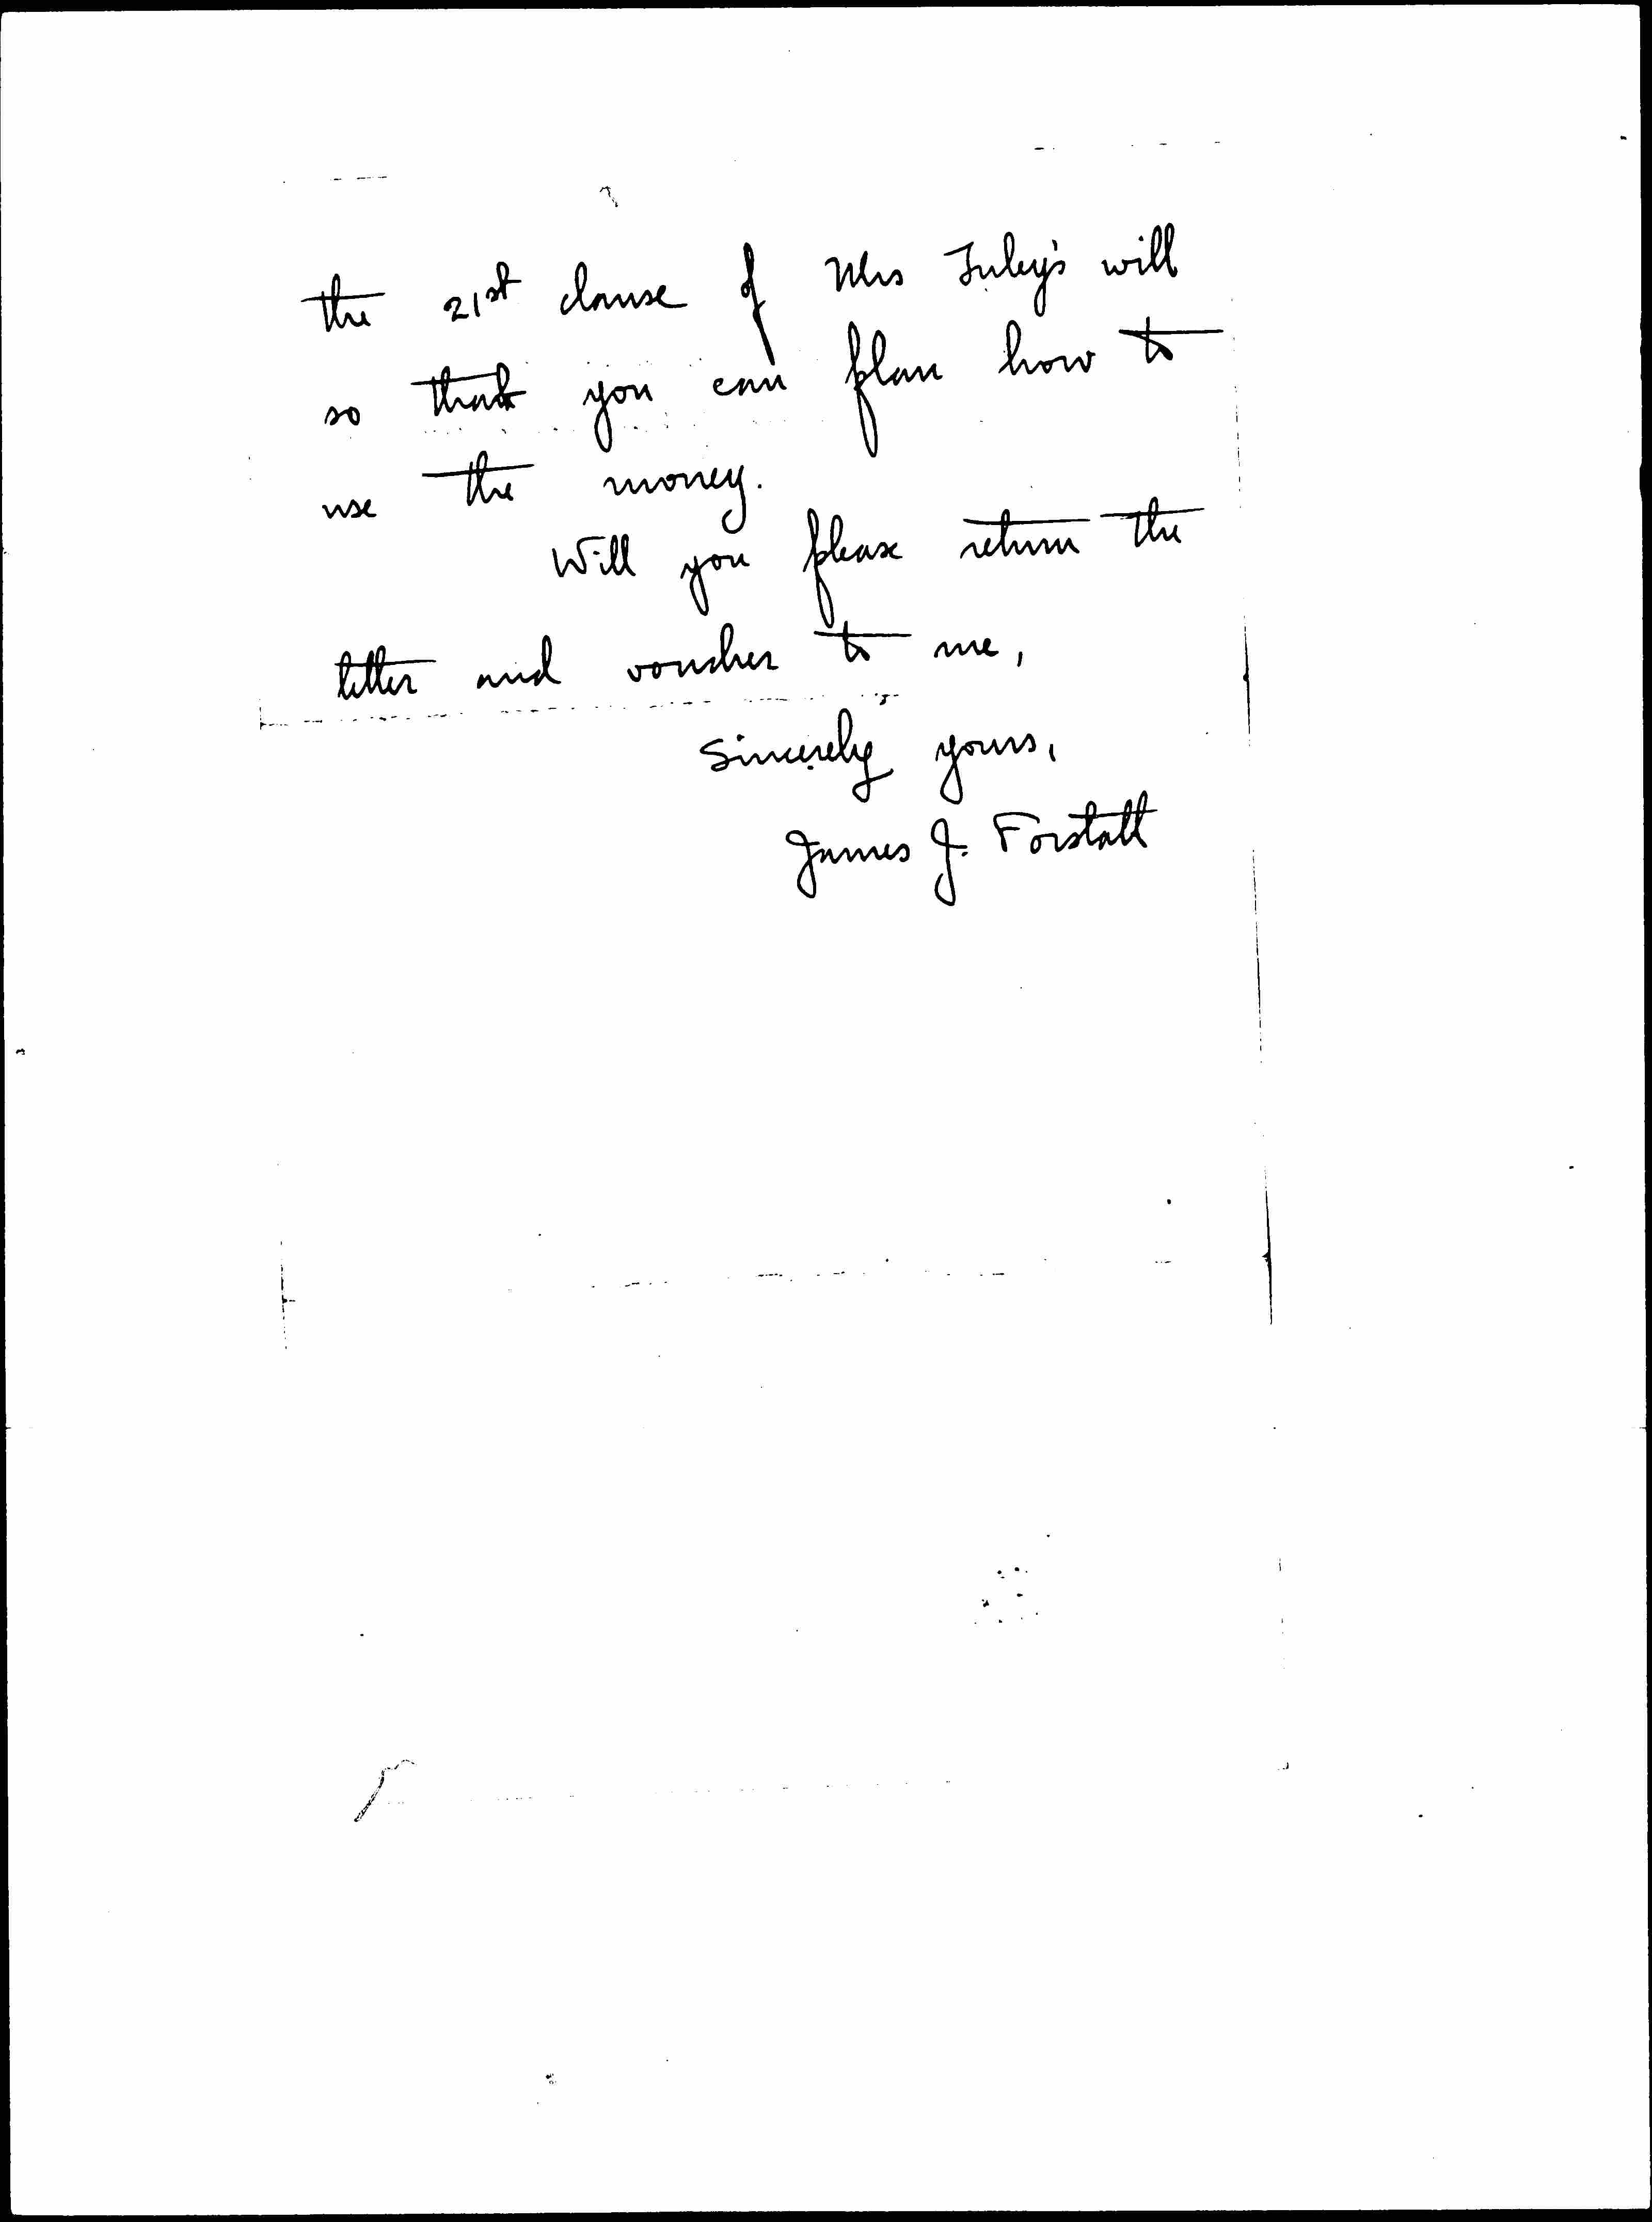 the 21st clause of Mrs will
so that you can plan how to
use the money.
Will you please return the
letter and voucher to me,
Sincerely yours,
James J. Forstall